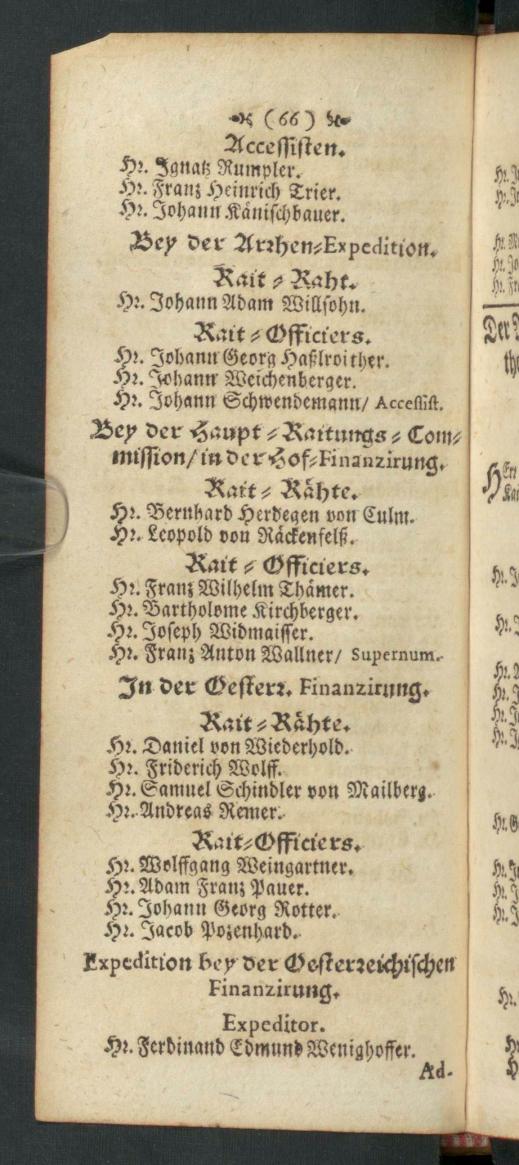 (66)
Accessisten.
Hr. Ignatz Rumpler.
Hr. Franz Heinrich Trier.
Hr. Johann Känischbauer.
Bey der Arrhen-Expedition.
Rait-Raht.
Hr. Johann Adam Willsohn.
Rait-Officiers.
Hr. Johann Georg Haßlroither.
Hr. Johann Weichenberger.
Hr. Johann Schwendemann/ Accessist.
Bey der Haupt-Raitungs-Com-
mission/ in der Hof-Finanzirung.
Rait-Rähte.
Hr. Bernhard Herdegen von Culm.
Hr. Leopold von Räckenfelß.
Rait-Officiers.
Hr. Franz Wilhelm Thämer.
Hr. Bartholome Kirchberger.
Hr. Joseph Widmaisser.
Hr. Franz Anton Wallner/ Supernum.
In der Oesterr. Finanzirung.
Rait-Rähte.
Hr. Daniel von Wiederhold.
Hr. Friderich Wolff.
Hr. Samuel Schindler von Mailberg.
Hr. Andreas Remer.
Rait-Officiers.
Hr. Wolffgang Weingartner.
Hr. Adam Franz Pauer.
Hr. Johann Georg Rotter.
Hr. Jacob Pozenhard.
Expedition bey der Oesterreichischen
Finanzirung.
Expeditor.
Hr. Ferdinand Edmund Wenighoffer.
Ad-